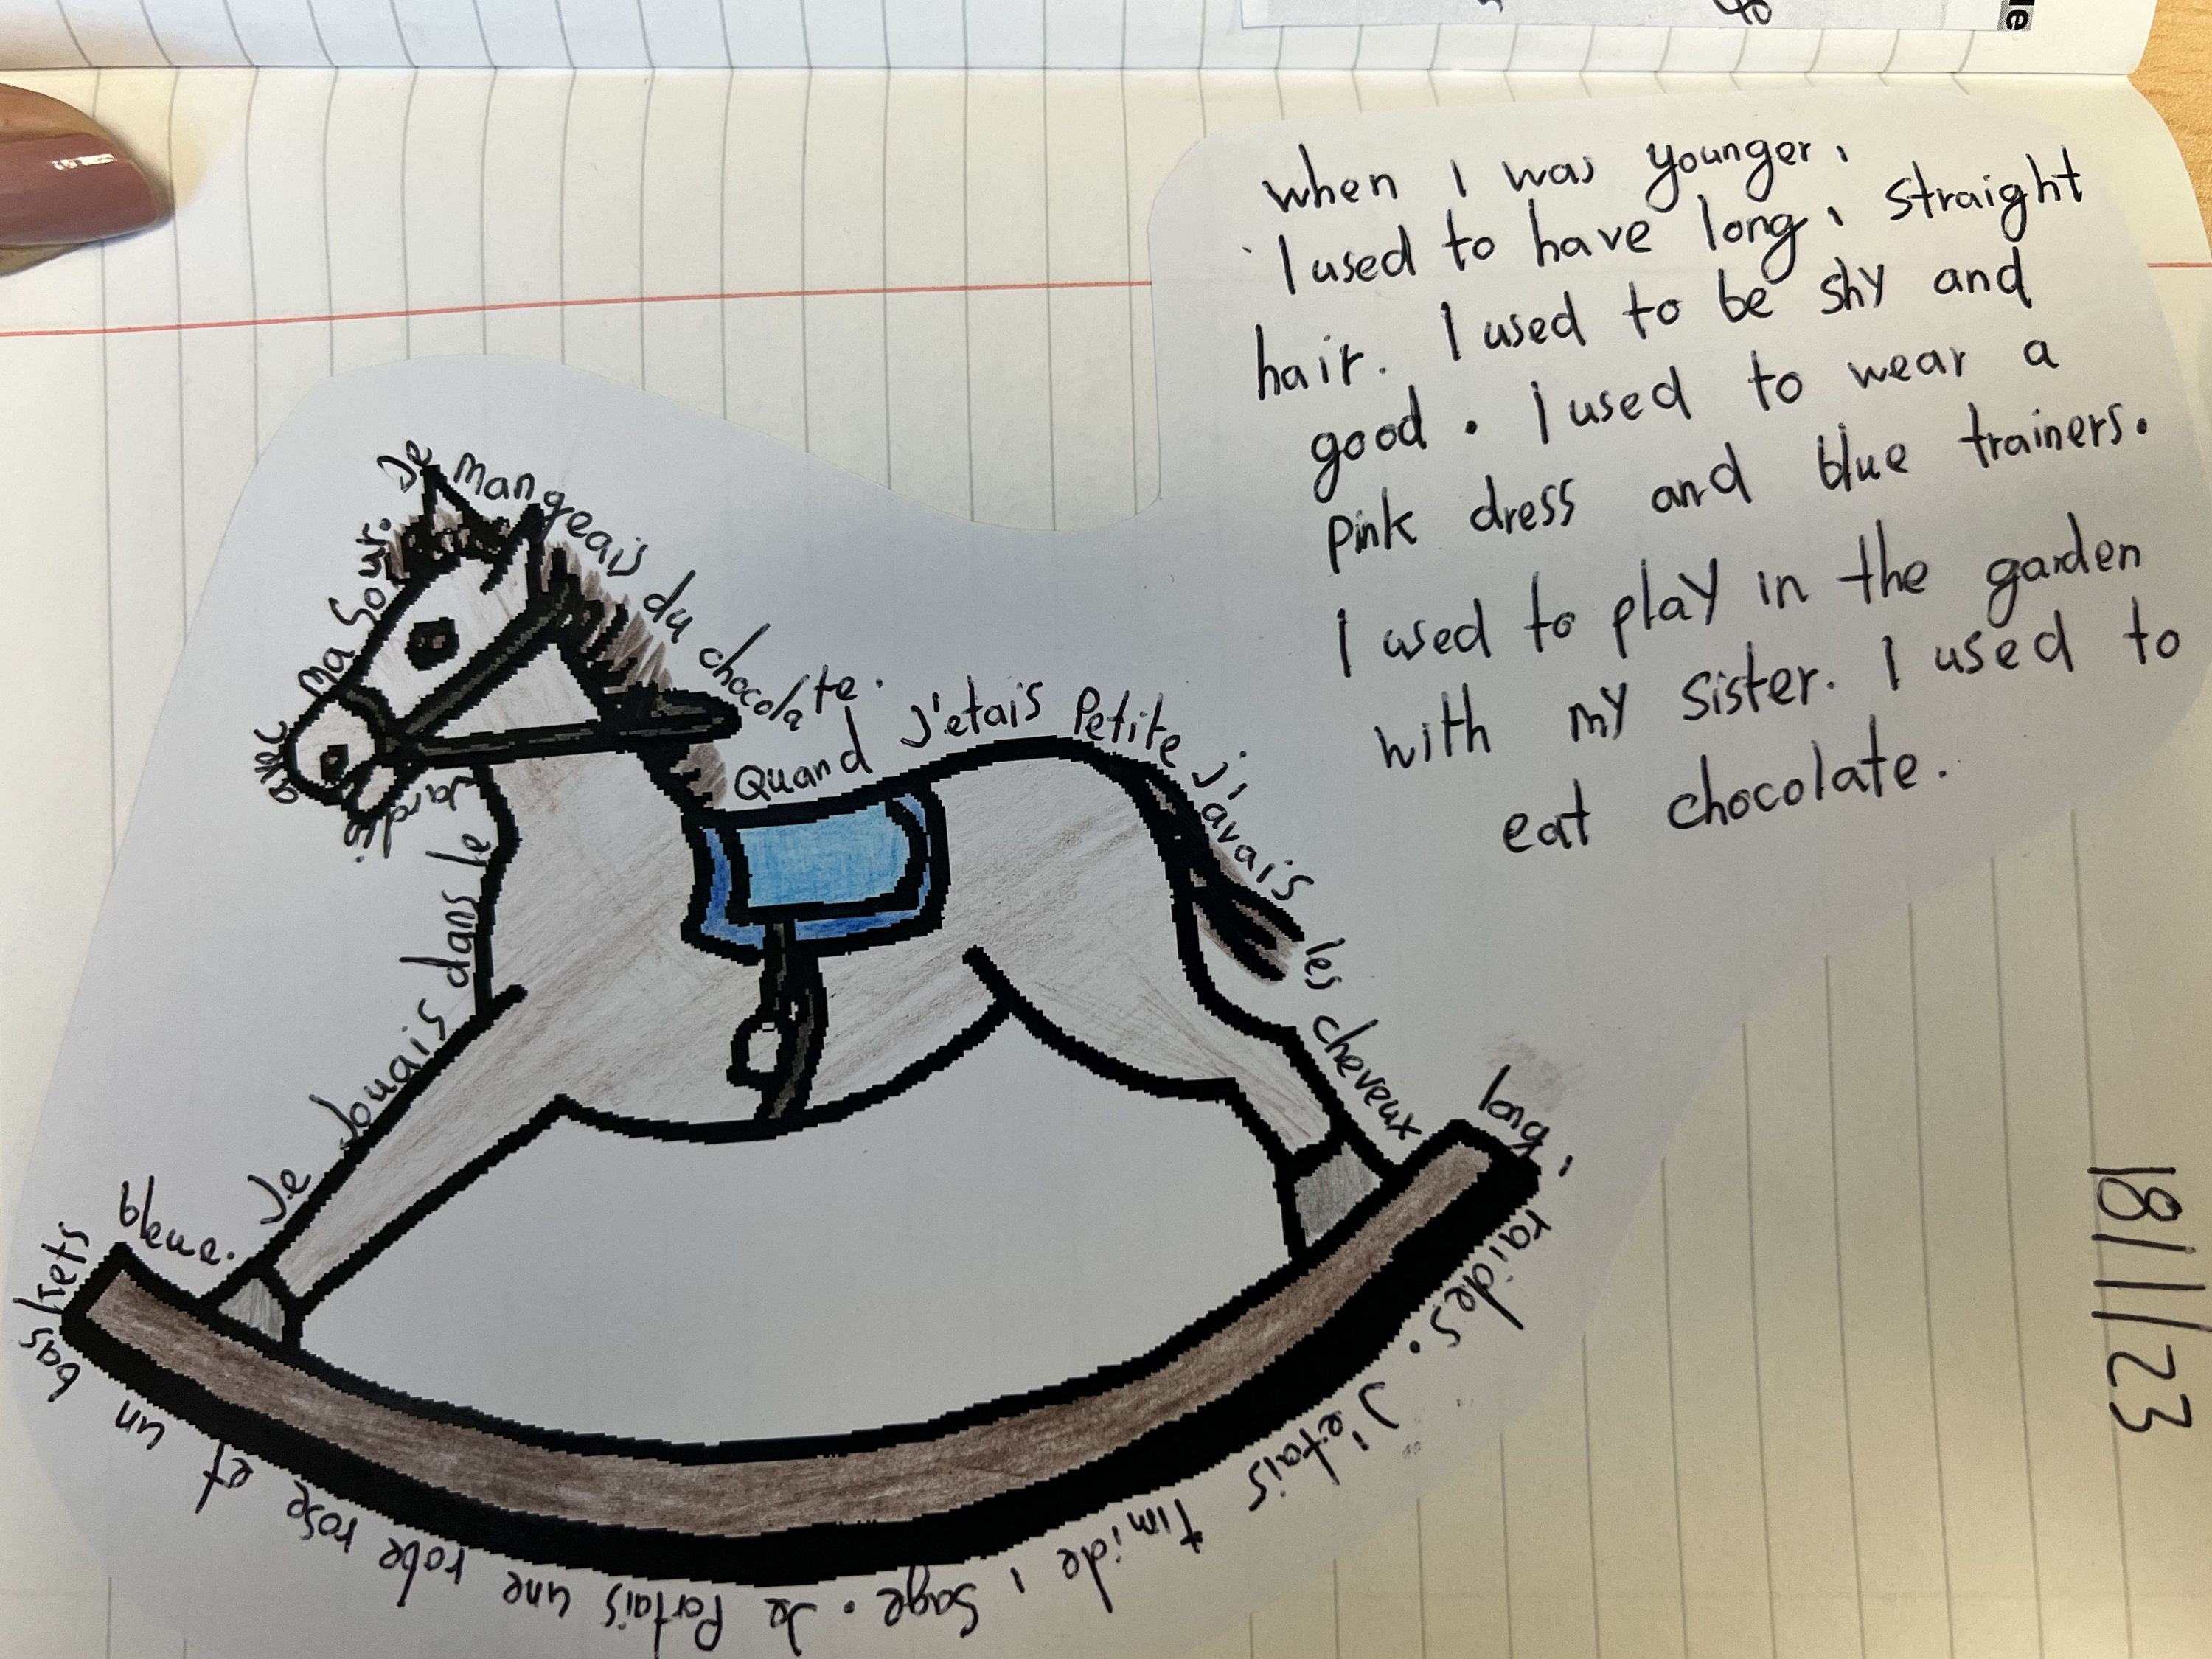 when I was younger,
I used to have long, straight
hair. I used to be shy and
good. I used to wear a
pink dress and blue trainers.
I used to play in the garden
with my sister. I used to
eat chocolate.
Quand J'etais Petite j'
avais les cheveux
long,
raides. J'etais timide, sage. Je Portais une robe rose et un
baskets
bleue.
Je Jouais dans le
Jardin
avec
ma Sour.
Je mangeais du chocolate.
18/1/23